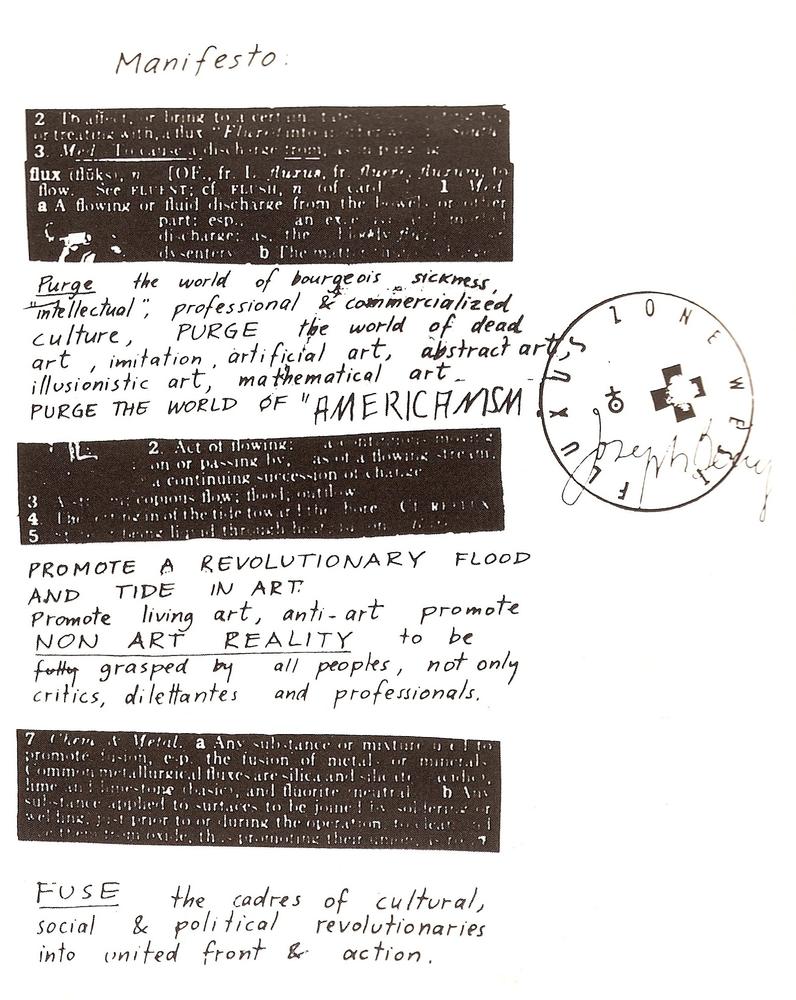 Manifesto:
2 To affect, or bring to a certain state,
or treating with, a flux "Fluxed into another world" South
3. Med. To cause a discharge from, as in purging
flux (flŭks), n. [OF., fr. L. fluxus, fr. fluere, fluxum, to
flow. See FLUENT; cf. FLUSH, n. (of cards).] 1 Med.
a A flowing or fluid discharge from the bowels or other
part; esp., an excessive and morbid
discharge; as, the bloody flux,
dysentery. b The matter
Purge the world of bourgeois sickness,
"intellectual", professional & commercialized
culture, PURGE the world of dead
art, imitation, artificial art, abstract art,
illusionistic art, mathematical art
PURGE THE WORLD OF "AMERICANISM"
2. Act of flowing: a continuous moving
on or passing by, as of a flowing stream;
a continuing succession of change
3 A stream; copious flow; flood; outflow
4 The setting in of the tide toward the shore. Cf. REFLUX
5 State of being liquid through heat
PROMOTE A REVOLUTIONARY FLOOD
AND TIDE IN ART.
Promote living art, anti-art promote
NON ART REALITY to be
fully grasped by all peoples, not only
critics, dilettantes and professionals.
7 Chem. & Metal. a Any substance or mixture used to
promote fusion, esp. the fusion of metals or minerals.
Common metallurgical fluxes are silica and silicates (acidic),
lime and limestone (basic), and fluorite (neutral). b Any
substance applied to surfaces to be joined by soldering or
welding, just prior to or during the operation, to clean and
free them from oxide, thus promoting their union, as rosin.
FUSE the cadres of cultural,
social & political revolutionaries
into united front & action.
FLUXUS ZONE WEST
Joseph Beuys